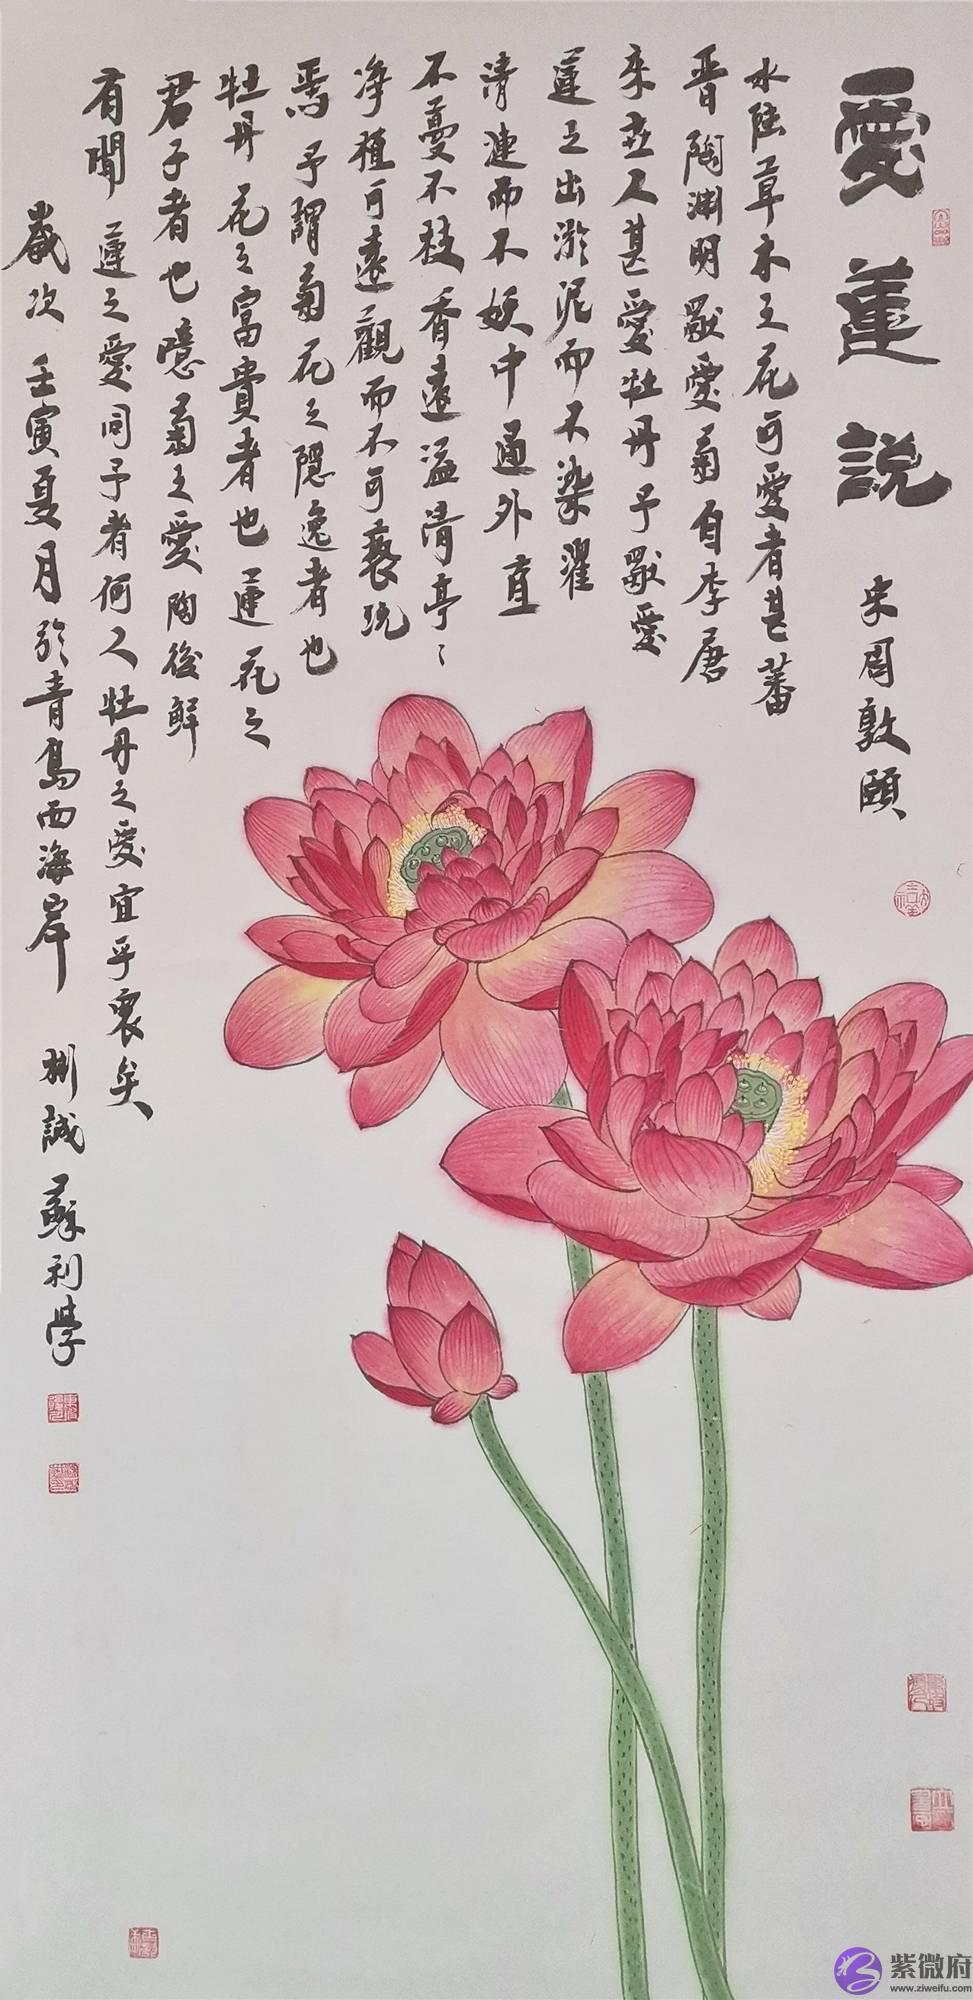 愛蓮說
宋周敦頤
水陸草木之花可愛者甚蕃
晋陶淵明獨愛菊自李唐
來世人甚愛牡丹予獨愛
蓮之出淤泥而不染濯
清漣而不妖中通外直
不蔓不枝香遠溢清亭〻
净植可遠觀而不可褻玩
焉予謂菊花之隱逸者也
牡丹花之富貴者也蓮花之
君子者也噫菊之愛陶後鮮
有聞蓮之愛同予者何人牡丹之愛宜乎衆矣
歲次壬寅夏月於青島西海岸 誠 蘇利學
紫微府
www.ziweifu.com